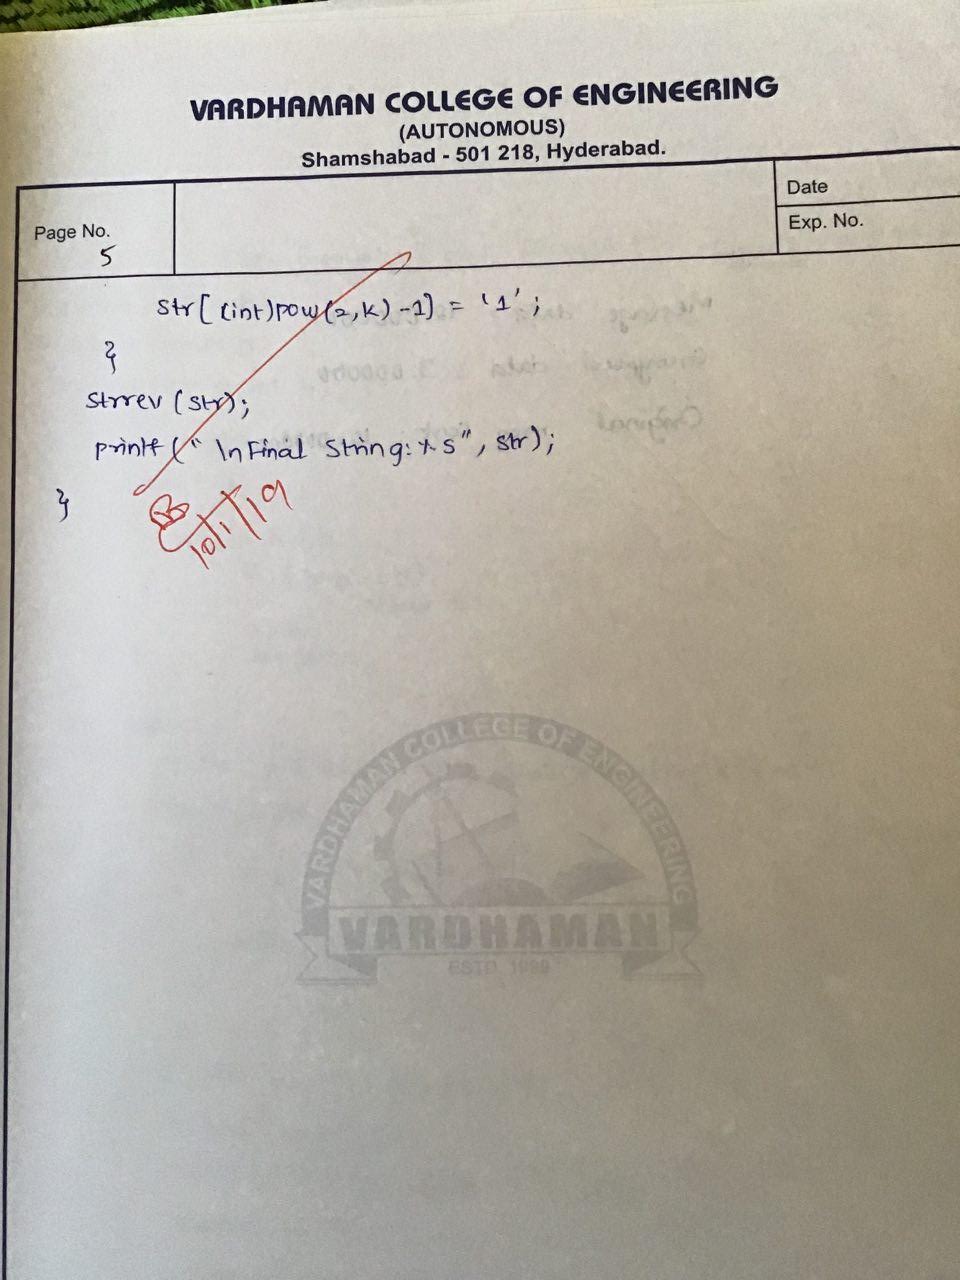 VARDHAMAN COLLEGE OF ENGINEERING
(AUTONOMOUS)
Shamshabad - 501 218, Hyderabad.
Page No.
5
Date
Exp. No.
str[(int)pow(2,k)-1] = '1';
}
strrev(str);
printf("\nFinal String:%s", str);
}
10/1/19
VARDHAMAN COLLEGE OF ENGINEERING
VARDHAMAN
ESTD. 1999